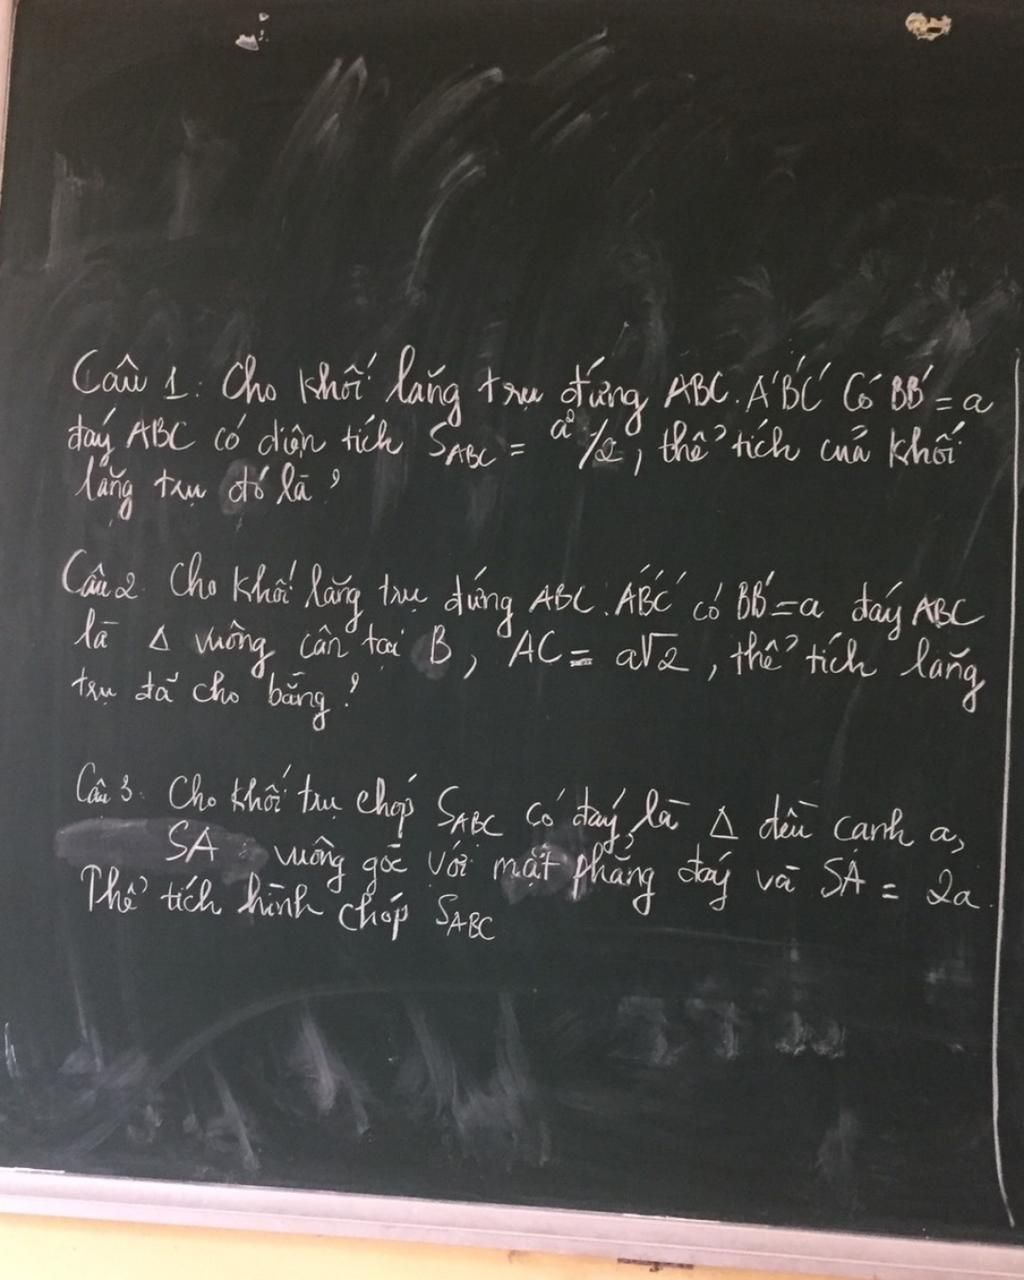 Câu 1: Cho khối lăng trụ đứng ABC.A'B'C' Có BB' = a
đáy ABC có diện tích S_ABC = a²/2, thể tích của khối
lăng trụ đó là?
Câu 2. Cho khối lăng trụ đứng ABC.A'B'C' có BB' = a đáy ABC
là Δ vuông cân tại B, AC = a√2, thể tích lăng
trụ đã cho bằng?
Câu 3: Cho khối trụ chóp S_ABC có đáy là Δ đều cạnh a,
SA vuông góc với mặt phẳng đáy và SA = 2a.
Thể tích hình chóp S_ABC